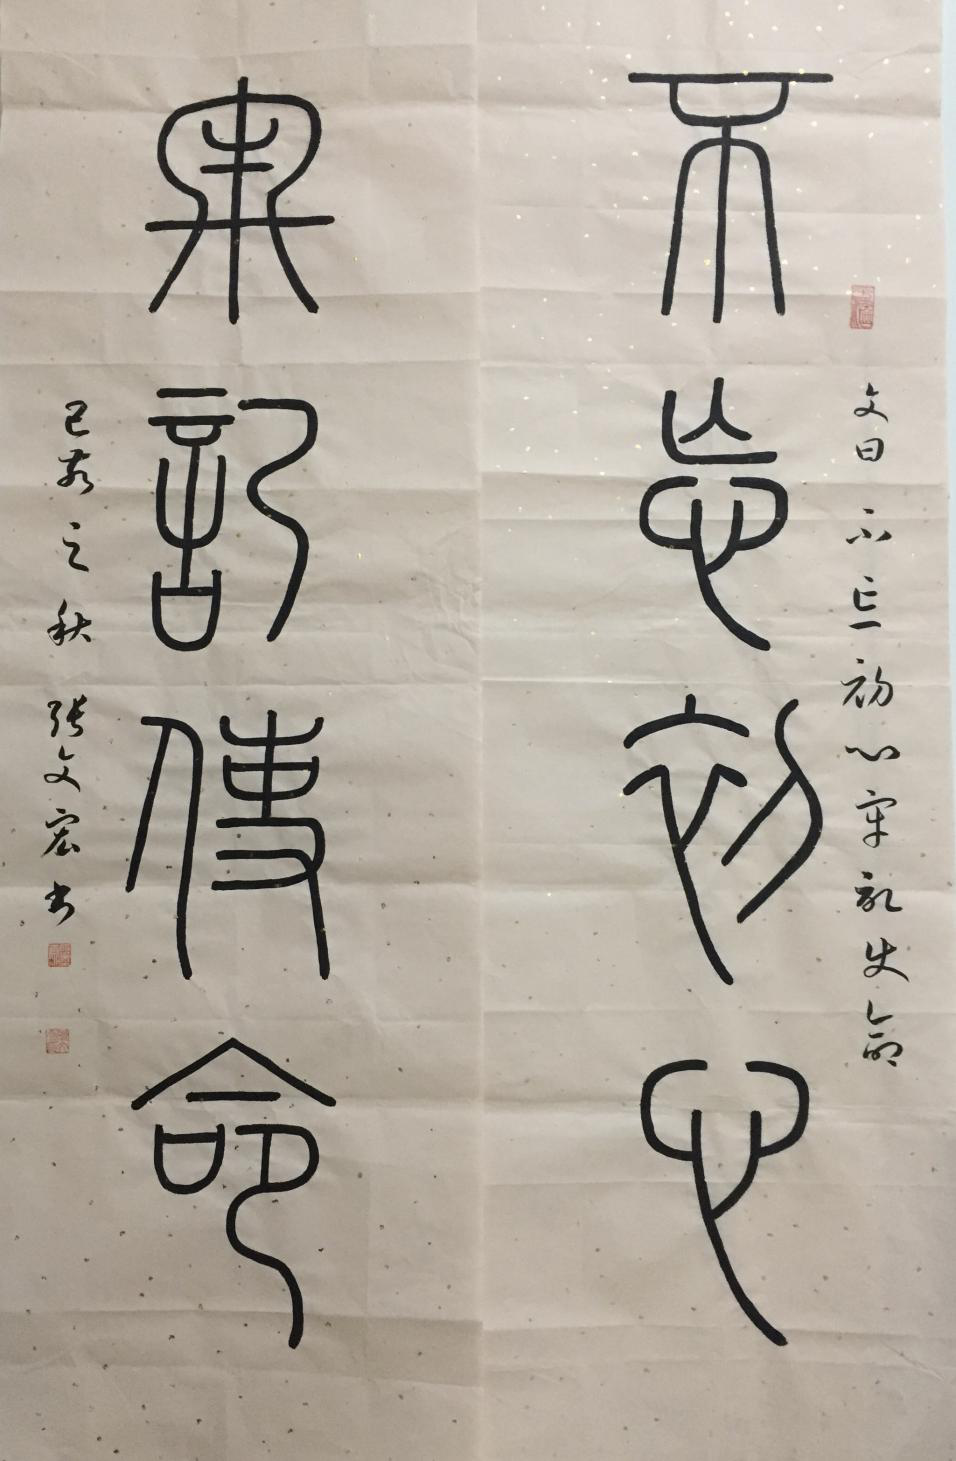 文曰不忘初心牢記使命
不忘初心
牢記使命
己亥之秋 張文宏书